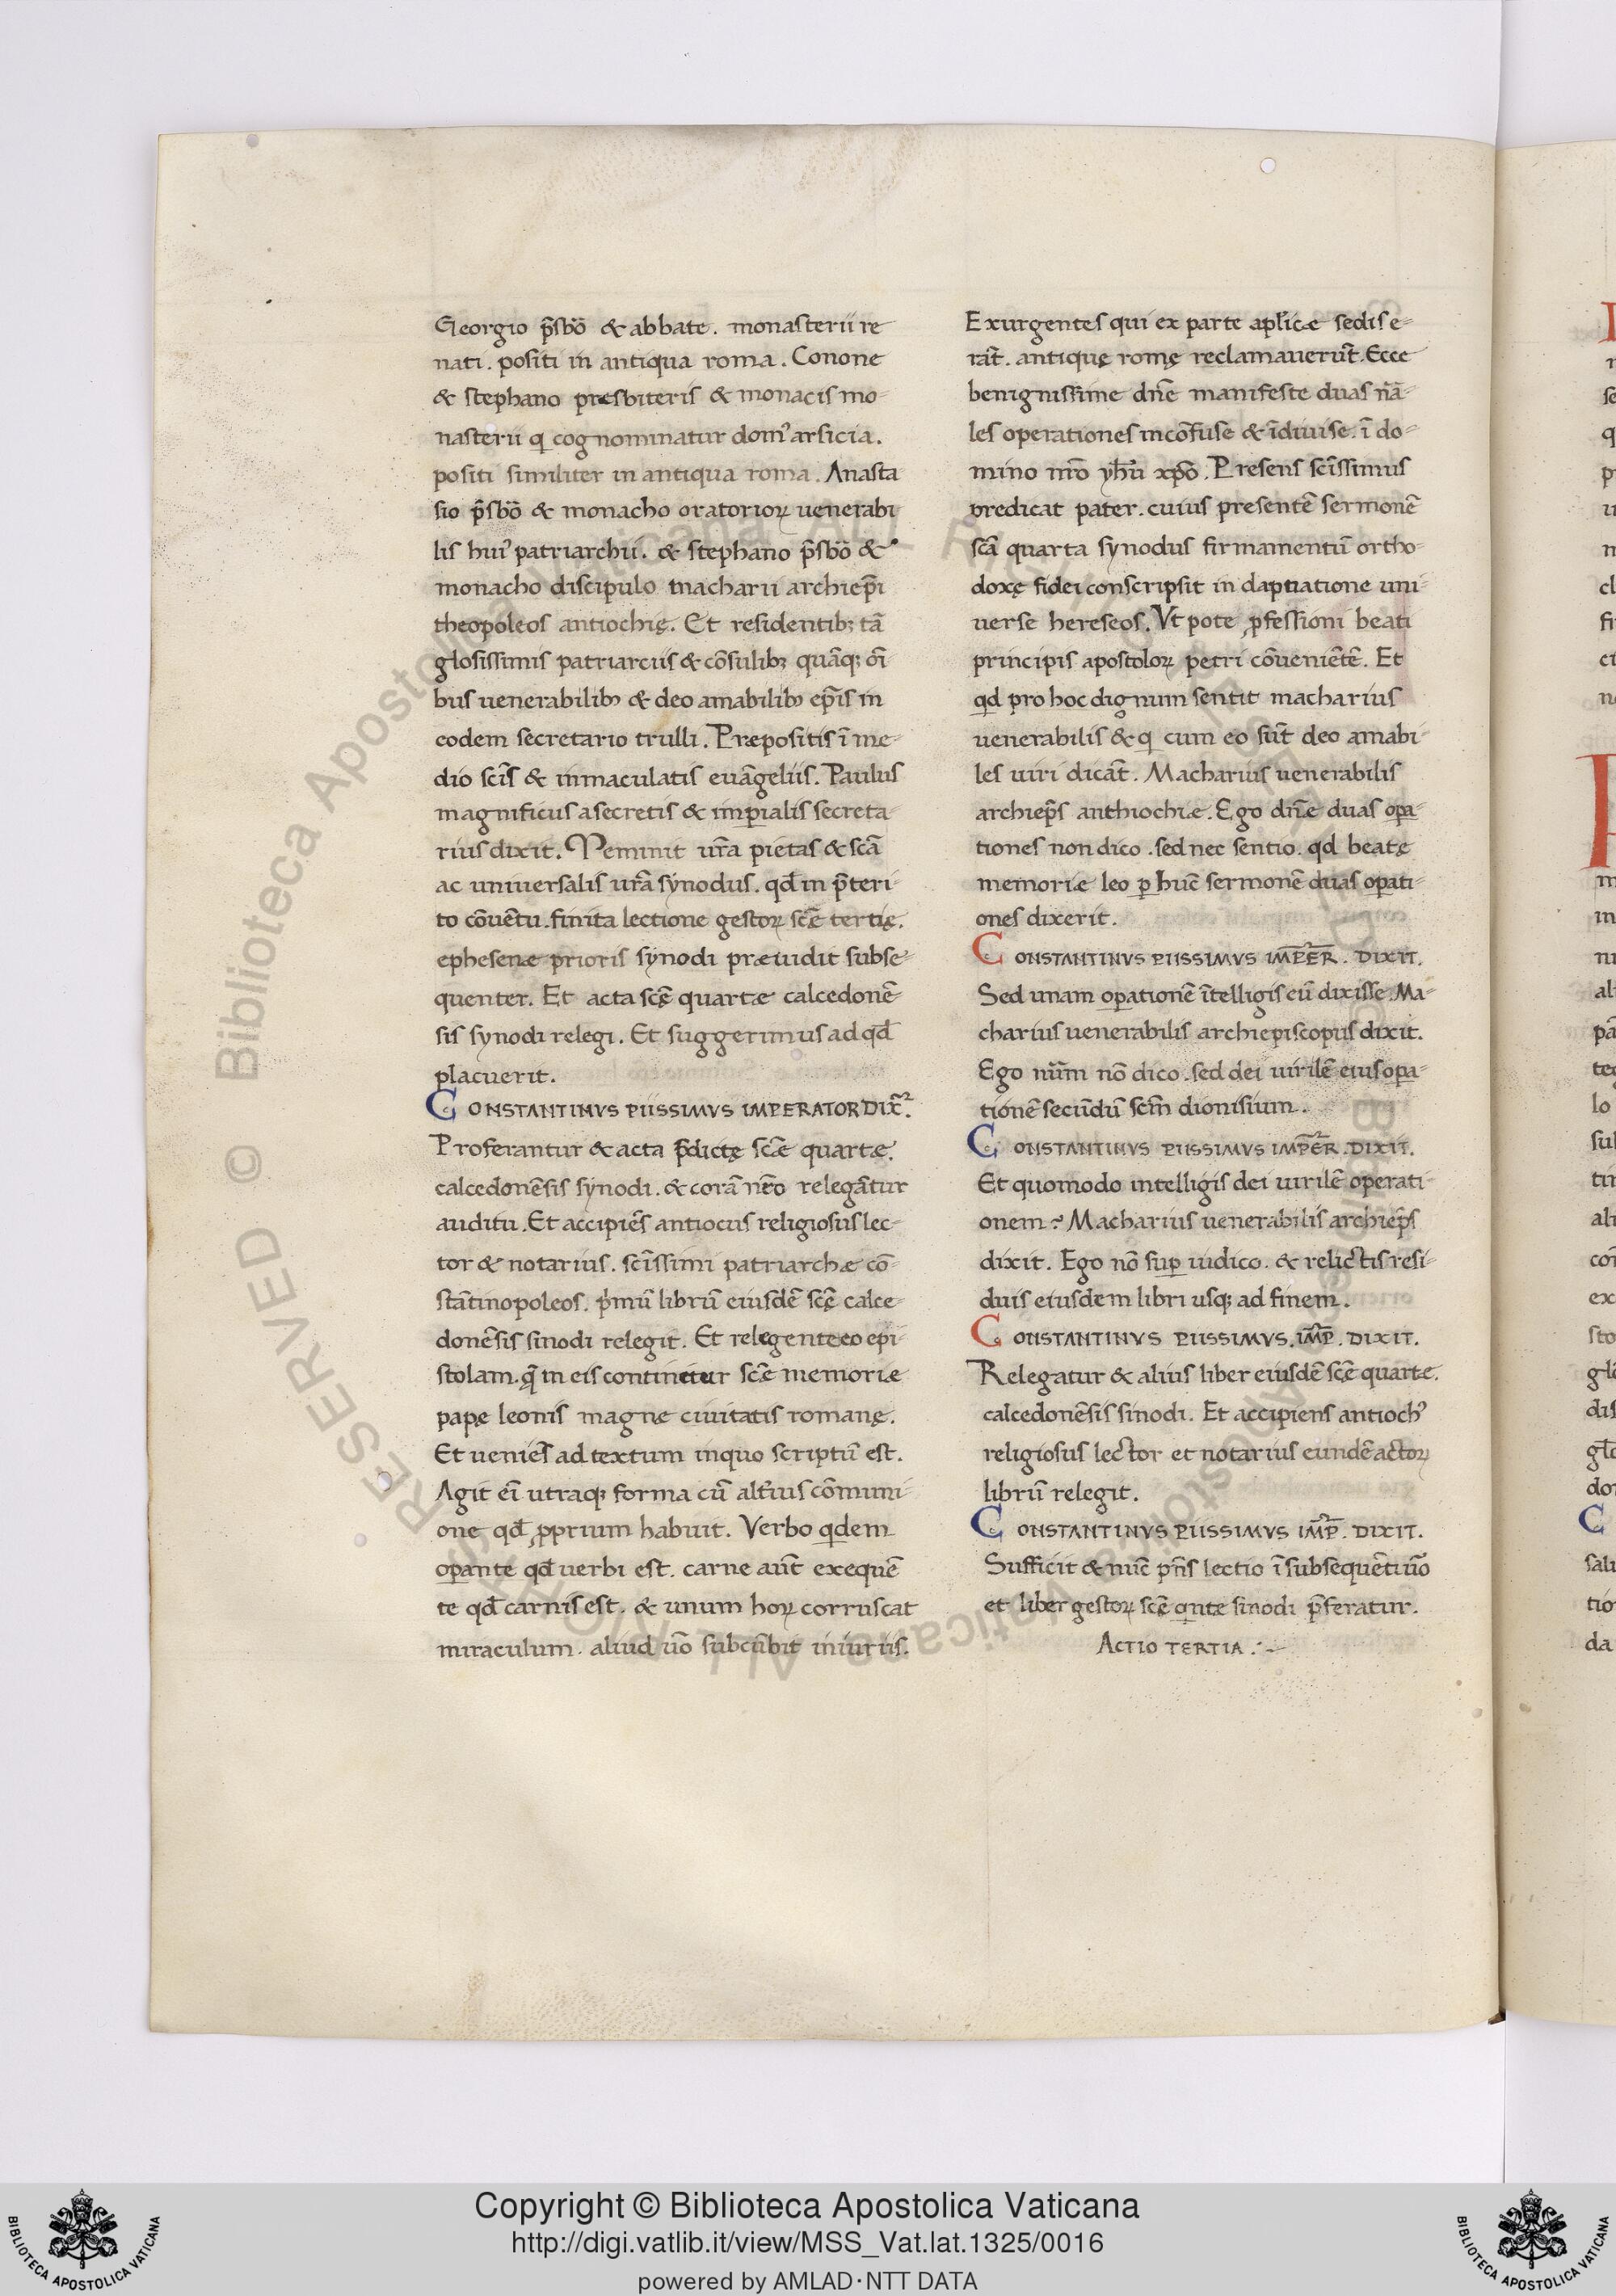 Georgio p̄sbō & abbate. monasterii re
nati. positi in antiqua roma. Conone
& stephano presbiteris & monacis mo-
nasterii q cognominatur domꝰ arsicia.
positi similiter in antiqua roma. Anasta
sio p̄sbō & monacho oratorioꝝ uenerabi
lis huiꝰ patriarchii. & stephano p̄sbō &
monacho discipulo macharii archiep̄i
theopoleos antiochię. Et residentibꝫ tā
glosissimis patriarciis & cōsulibꝫ quāqꝫ oī
bus uenerabilibꝫ & deo amabilibꝫ ep̄is in
eodem secretario trulli. Præpositis ī me-
dio scīs & inmaculatis euāgeliis. Paulus
magnificus asecretis & imꝑialis secreta-
rius dixit. Meminit ur̄a pietas & scā
ac uniuersalis ur̄a synodus. qđ in p̄teri-
to cōuētu. finita lectione gestoꝝ scę̄ tertię.
ephesenæ prioris synodi præuidit subse-
quenter. Et acta scę̄ quartæ calcedonē
sis synodi relegi. Et suggerimus ad qđ
placuerit.
CONSTANTINVS PIISSIMVS IMPERATOR DIX̄.
Proferantur & acta p̄dictę scǣ quartæ.
calcedonēsis synodi. & corā nr̄o relegātur
auditu. Et accipiēs antiocus religiosus lec-
tor & notarius. scīssimi patriarchæ cō-
stātinopoleos. pͥmū librū eiusdē scę̄ calce-
donēsis sinodi relegit. Et relegente eo epi-
stolam. q̄ in eis continetur scǣ memoriæ
papę leonis magne ciuitatis romanę.
Et ueniēs ad textum inquo scriptū est.
Agit eī utraqꝫ forma cū altͥius cōmuni-
one qđ ꝓprium habuit. Verbo qdem
oꝑante qđ uerbi est. carne aūt exequē
te qđ carnis est. & unum hoꝝ corruscat
miraculum. aliud ūo subcūbit iniuriis.
Exurgentes qui ex parte aplicæ sedis e-
rāt. antiquę romę reclamauerūt. Ecce
benignissime dn̄e manifeste duas nā-
les operationes incōfuse & īdiuise. ī do-
mino nr̄o yh̄u xp̄o. Presens scīssimus
predicat pater. cuius presentē sermonē
scā quarta synodus firmamentū ortho-
doxę fidei conscripsit in dapnatione uni-
uerse hereseos. Vt pote ꝓfessioni beati
principis apostoloꝝ petri cōueniētē. Et
qđ pro hoc dignum sentit macharius
uenerabilis & q cum eo sūt deo amabi-
les uiri dicāt. Macharius uenerabilis
archiep̄s anthiochiæ. Ego dn̄e duas oꝑa-
tiones non dico. sed nec sentio. qđ beatę
memoriæ leo ꝑ hūc sermonē duas oꝑati-
ones dixerit.
CONSTANTINVS PIISSIMVS IMPER̄. DIXIT.
Sed unam oꝑationē ītelligis eū dixisse. Ma-
charius uenerabilis archiepiscopus dixit.
Ego nūm nō dico. sed dei uirilē eius oꝑa-
tionē secūdū scm̄ dionisium.
CONSTANTINVS PIISSIMVS IMPER̄. DIXIT.
Et quomodo intelligis dei uirilē operati-
onem? Macharius uenerabilis archiep̄s
dixit. Ego nō suꝑ iudico. & relictis resi-
duis eiusdem libri usqꝫ ad finem.
CONSTANTINVS PIISSIMVS. IMP̄. DIXIT.
Relegatur & alius liber eiusdē scę̄ quarte.
calcedonēsis sinodi. Et accipiens antiochꝰ
religiosus lector et notarius eundē actoꝝ
librū relegit.
CONSTANTINVS PIISSIMVS IMP̄. DIXIT.
Sufficit & nūc p̄ns lectio ī subsequēti ūo
et liber gestoꝝ scę̄ qͥnte sinodi p̄feratur.
ACTIO TERTIA
Copyright © Biblioteca Apostolica Vaticana
http://digi.vatlib.it/view/MSS_Vat.lat.1325/0016
powered by AMLAD·NTT DATA